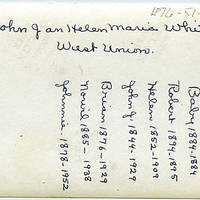 John J an Helen Maria Whi
West Union.
Baby 1884-1884
Robert 1894-1945
Helen 1852-1909
John J. 1844-1929
Brian 1876-1929
Noviel 1885-1938
Johnnie. 1878-1952